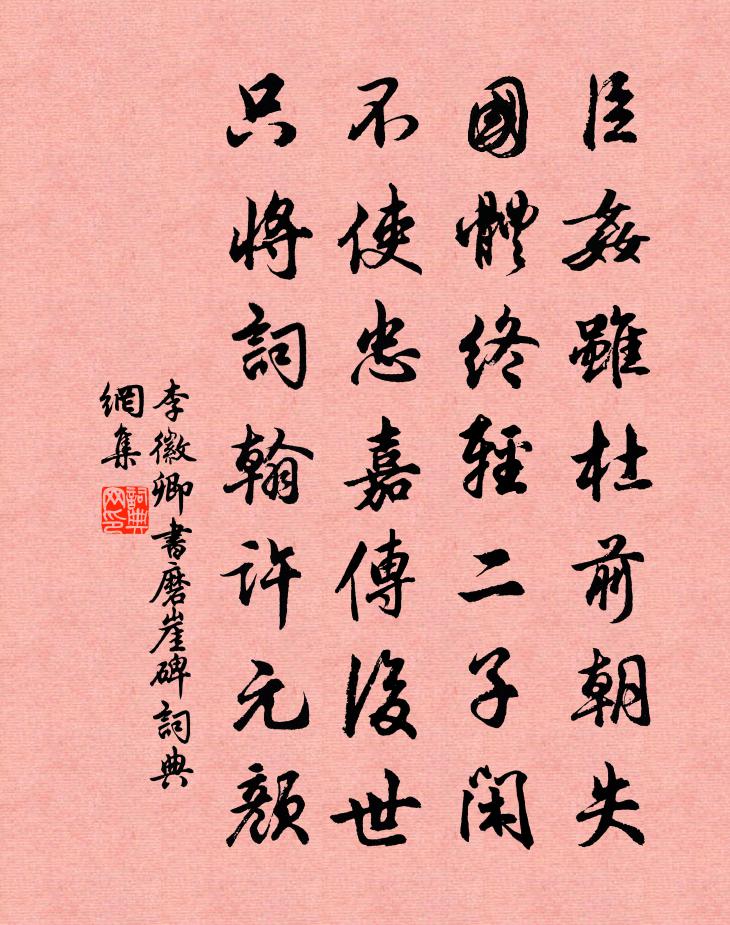 臣姦雖杜前朝失
國體終輕二子閑
不使忠嘉傳後世
只將詞翰許元顏
李徽卿書磨崖碑詞典
網集
詞典
网印